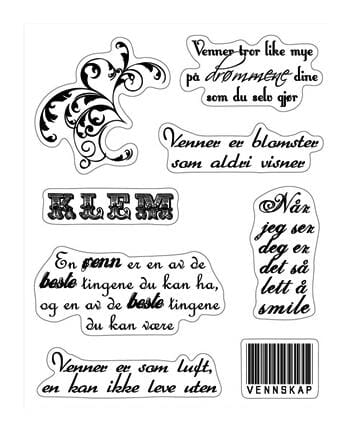 Venner tror like mye
på drømmene dine
som du selv gjør
Venner er blomster
som aldri visner
KLEM
Når
jeg ser
deg er
det så
lett å
smile
En venn er en av de
beste tingene du kan ha,
og en av de beste tingene
du kan være
Venner er som luft,
en kan ikke leve uten
VENNSKAP